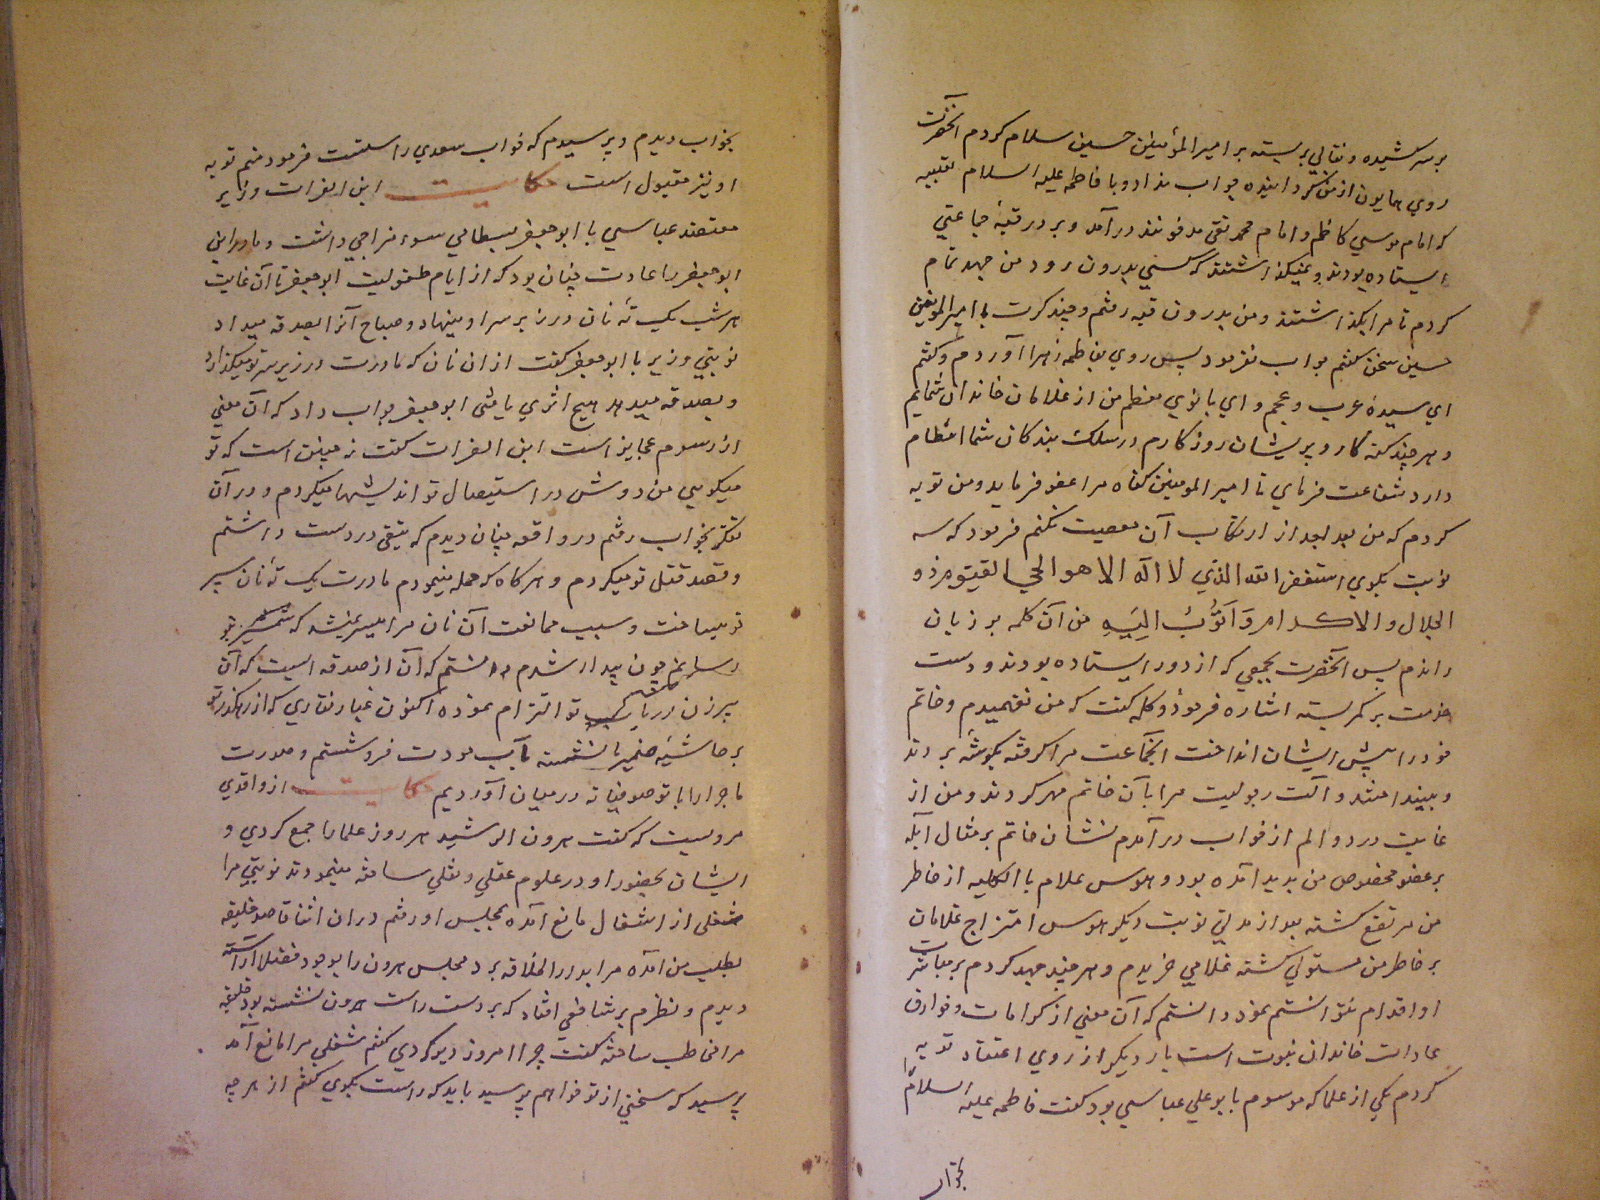 بر سر کشیده و نقابی بر بسته بر امیرالمؤمنین حسین سلام کردم آنحضرت
روی همایون از من گردانیده جواب نداد و با فاطمه علیه السلام بقبه
که امام موسی کاظم و امام محمد تقی مدفونند درآمد و بر در قبه جماعتی
ایستاده بودند و نمیگذاشتند که کسی بدرون رود من جهد تمام
کردم تا مرا بگذاشتند و من بدرون قبه رفتم و چند کرت با امیرالمؤمنین
حسین سخن گفتم جواب نفرمود پس روی بفاطمه زهرا آوردم و گفتم
ای سیدهٔ عرب و عجم و ای بانوی معظم من از غلامان خاندان شمایم
و هر چند گنه کار و پریشان روزگارم در سلک بندگان شما انتظام
دارد شفاعت فرمای تا امیرالمومنین گناه مرا عفو فرماید و من توبه
کردم که من بعد از ارتکاب آن معصیت نکنم فرمود که سه
نوبت بگوی استغفر الله الذی لا اله الا هو الحی القیوم ذو
الجلال والاکرام وَاَتُوبُ اِلَیهِ من آن کلمه بر زبان
راندم پس آنحضرت بجمعی که از دور ایستاده بودند و دست
خدمت بر کمر بسته اشاره فرمود و کلمه گفت که من نفهمیدم و خاتم
خود را پیش ایشان انداخت آنجماعت مرا گرفته بگوشهٔ بردند
و بینداختند و آلت رجولیت مرا بآن خاتم مهر کردند و من از
غایت درد و الم از خواب درآمدم نشان خاتم بر مثال آبله
بر عضو مخصوص من پدید آمده بود و هوس غلام بالکلیه از خاطر
من مرتفع گشته بعد از مدتی نوبت دیگر هوس امتزاج غلامان
بر خاطر من مستولی گشته غلامی خریدم و هر چند جهد کردم بر مباشرت
او اقدام نتوانستم نمود دانستم که آن معنی از کرامات و خوارق
عادات خاندان نبوت است بار دیگر از روی اعتقاد توبه
کردم یکی از علما که موسوم بابو علی عباسی بود گفت فاطمه علیه السلام را
بخواب
بخواب دیدم و پرسیدم که خواب سعدی راستست فرمود نعم توبه
او نیز مقبول است حکایت ابن الفرات وزیر
معتضد عباسی با ابو جعفر بسطامی سوء مزاجی داشت و مادر این
ابو جعفر را عادت چنان بود که از ایام طفولیت ابو جعفر تا آن غایت
هر شب یک تهٔ نان در زیر سر او مینهاد و صباح آنرا بصدقه میداد
نوبتی وزیر با ابو جعفر گفت از ان نان که مادرت در زیر سر تو میگذارد
و بصدقه میدهد هیچ اثری یافتی ابو جعفر جواب داد که آن معنی
از رسوم عجایز است ابن الفرات گفت نه چنین است که تو
میگویی من دوش در استیصال تو اندیشها میکردم و در آن
تفکر بخواب رفتم در واقعه چنان دیدم که تیغی در دست داشتم
و قصد قتل تو میکردم و هر گاه که حمله مینمودم مادرت یک تهٔ نان سپر
تو میساخت و سبب ممانعت آن نان مرا میسر نمیشد که شمشیر بتو
رسانم چون بیدار شدم دانستم که آن از صدقه ایست که آن
پیرزن در باب تو التزام نموده اکنون غبار نقاری که از رهگذر تو
بر حاشیهٔ ضمیر نشسته بآب مودت فرو شستم و صورت
ماجرا را با تو صوفیانه در میان آوردیم حکایت از واقدی
مرویست که گفت هرون الرشید هر روز علما را جمع کردی و
ایشان بحضور او در علوم عقلی و نقلی مباحثه مینمودند نوبتی مرا
شغلی از اشتغال مانع آمده بمجلس او رفتم در ان اثنا قاصد خلیفه
بطلب من آمده مرا بدار الخلافه برد مجلس هرون را بوجود فضلا آراسته
دیدم و نظرم بر شافعی افتاد که بر دست راست هرون نشسته بود خلیفه
مرا مخاطب ساخته گفت چرا امروز دیر کردی گفتم شغلی مرا مانع آمد
پرسید که سخنی از تو خواهم پرسید باید که راست بگوی گفتم از هر چه